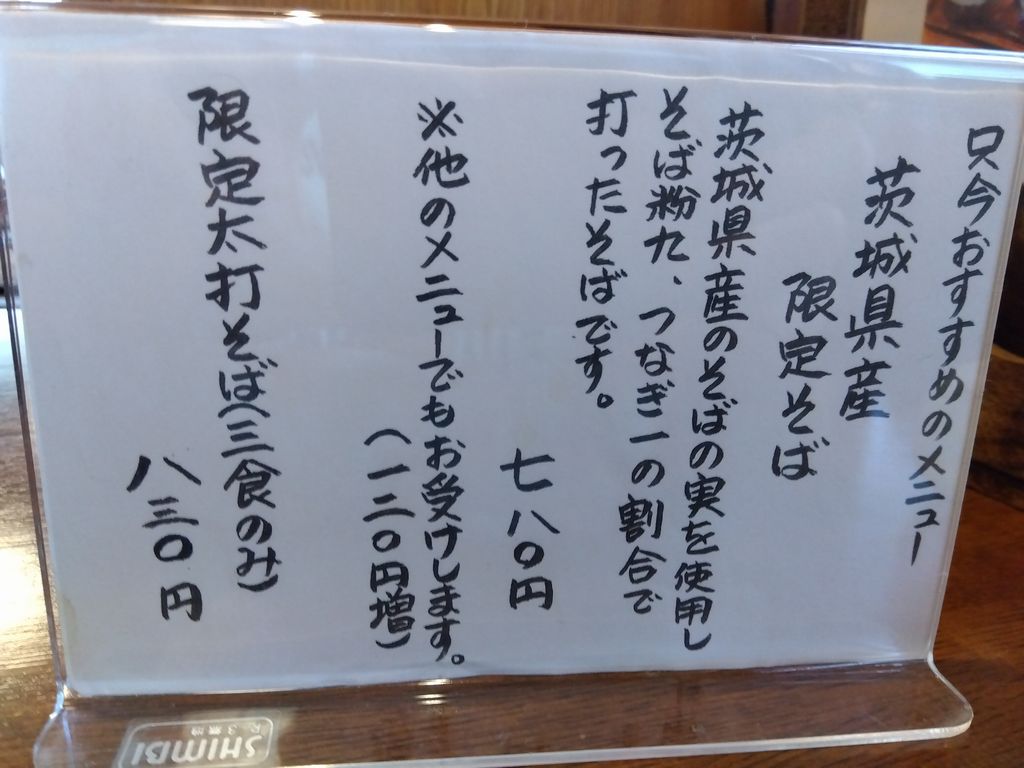 只今おすすめのメニュー
茨城県産
限定そば
茨城県産のそばの実を使用し
そば粉九、つなぎ一の割合で
打ったそばです。
七八〇円
※他のメニューでもお受けします。
(一二〇円増)
限定太打そば(三食のみ)
八三〇円
SHIMBI